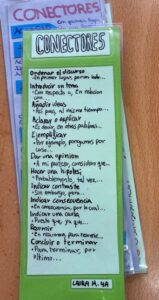 CONECTORES
CONECTORES
Ordenar el discurso
• En primer lugar, por un lado...
Introducir un tema
• Con respecto a, En relación con...
Añadir ideas
• Así pues, al mismo tiempo...
Aclarar o explicar
• Es decir, en otras palabras...
Ejemplificar
• Por ejemplo, pongamos por caso...
Dar una opinión
• A mi parecer, considero que...
Hacer una hipótesis
• Probablemente, tal vez...
Indicar contraste
• Sin embargo, pero...
Indicar consecuencia
• En consecuencia, por lo cual...
Indicar una causa
• Puesto que, ya que...
Resumir
• En resumen, para resumir...
Concluir o terminar
• Para terminar, por último...
LAURA M. 4A